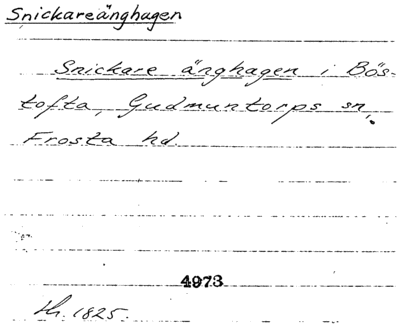 Snickareänghagen
Snickare änghagen i Bös-
tofta, Gudmuntorps sn,
Frosta hd.
4973
Lh. 1825.